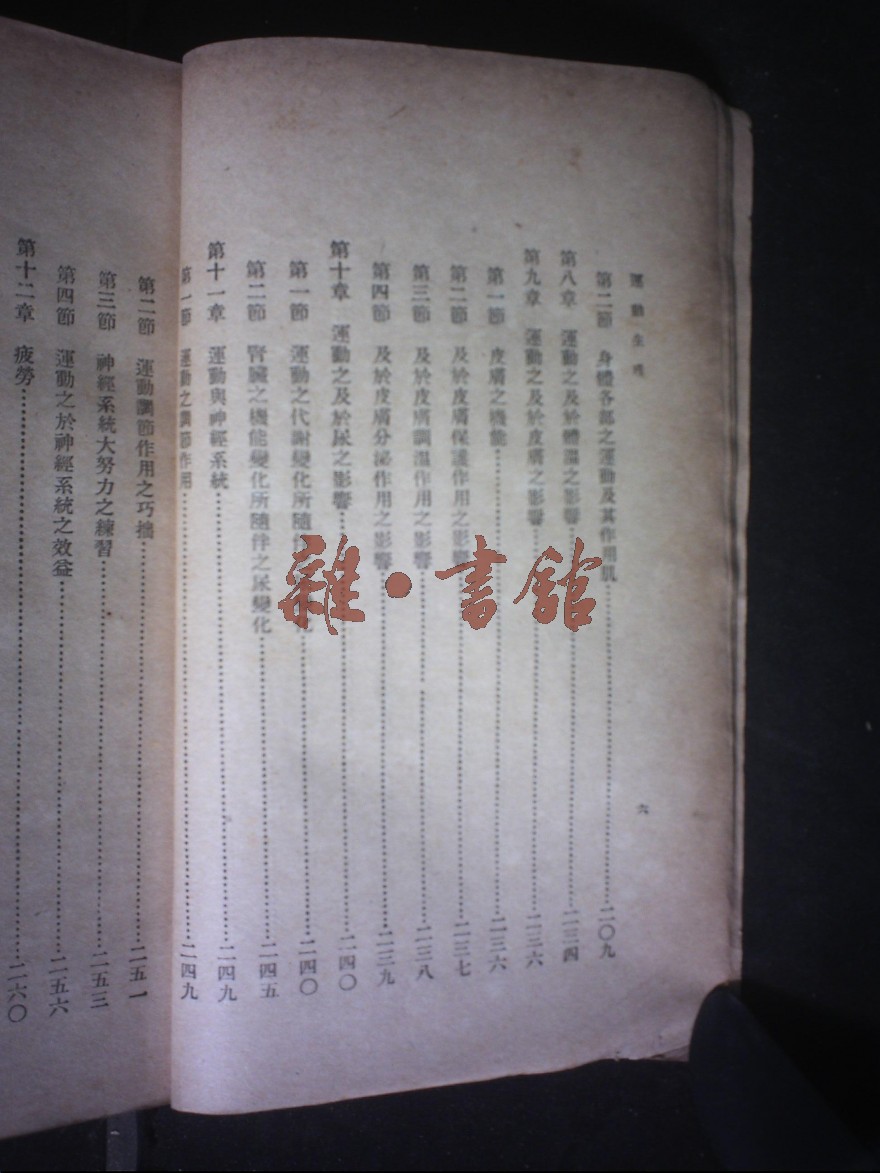 運動生理
第二節 身體各部之運動及其作用肌……二〇九
第八章 運動之及於體溫之影響……二三四
第九章 運動之及於皮膚之影響……二三六
第一節 皮膚之機能……二三六
第二節 及於皮膚保護作用之影響……二三七
第三節 及於皮膚調溫作用之影響……二三八
第四節 及於皮膚分泌作用之影響……二三九
第十章 運動之及於尿之影響……二四〇
第一節 運動之代謝變化所隨伴……化……二四〇
第二節 腎臟之機能變化所隨伴之尿變化……二四五
第十一章 運動與神經系統……二四九
第一節 運動之調節作用……二四九
六
第二節 運動調節作用之巧拙……二五一
第三節 神經系統大努力之練習……二五三
第四節 運動之於神經系統之效益……二五六
第十二章 疲勞……二六〇
雜·書館